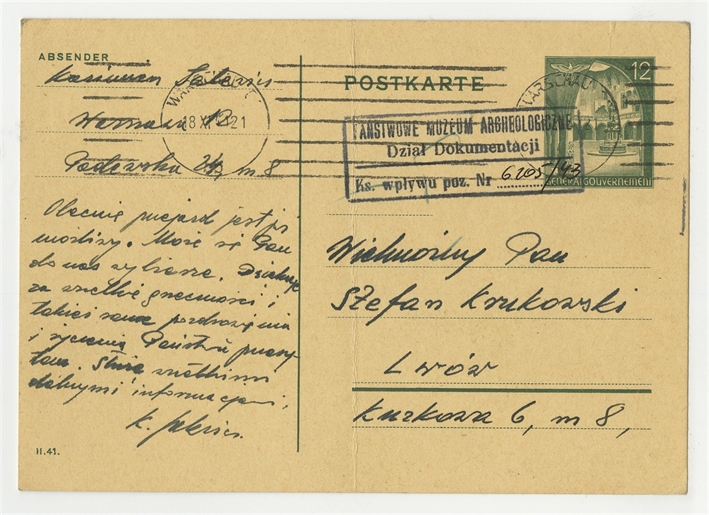 ABSENDER
Kazimierz Salewicz
Warszawa 12
24, m 8
POSTKARTE
12
WARSCHAU
18 XI 21
PAŃSTWOWE MUZEUM ARCHEOLOGICZNE
Dział Dokumentacji
Ks. wpływu poz. Nr 6205/43
GENERALGOUVERNEMENT
Obecnie przejazd jest już
możliwy. Może się Pan
do nas wybierze. Dziękuję
za wszelkie grzeczności i
takież same pozdrowienia
i życzenia Państwu
Służę wszelkimi
dalszymi informacjami,
K. Salewicz
Wielmożny Pan
Stefan Krukowski
Lwów
Kurkowa 6, m 8,
II.41.